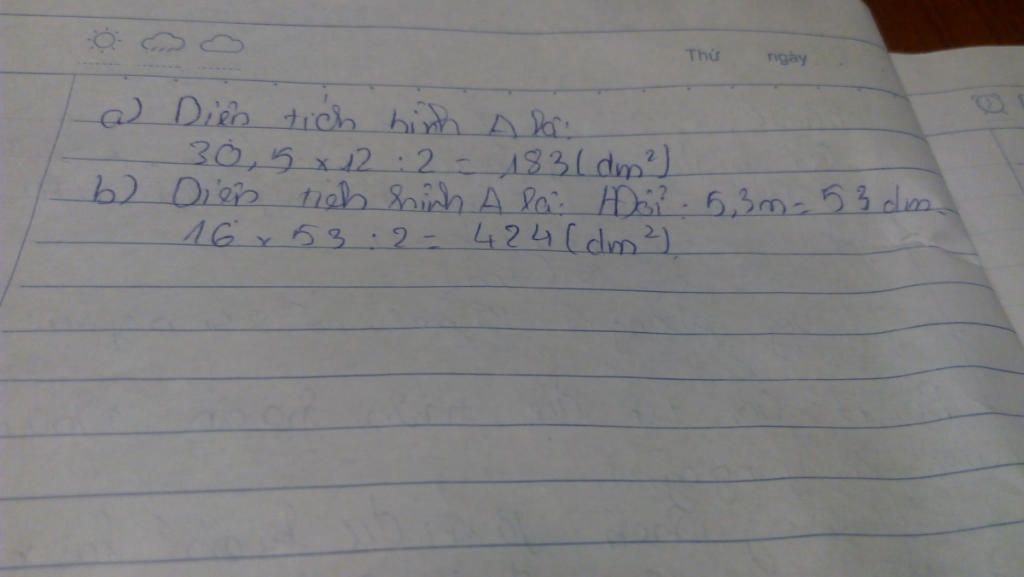 Thứ ngày
a) Diện tích hình Δ là:
30,5 x 12 : 2 = 183 (dm²)
b) Diện tích hình Δ là: Đổi : 5,3m = 53 dm
16 x 53 : 2 = 424 (dm²)